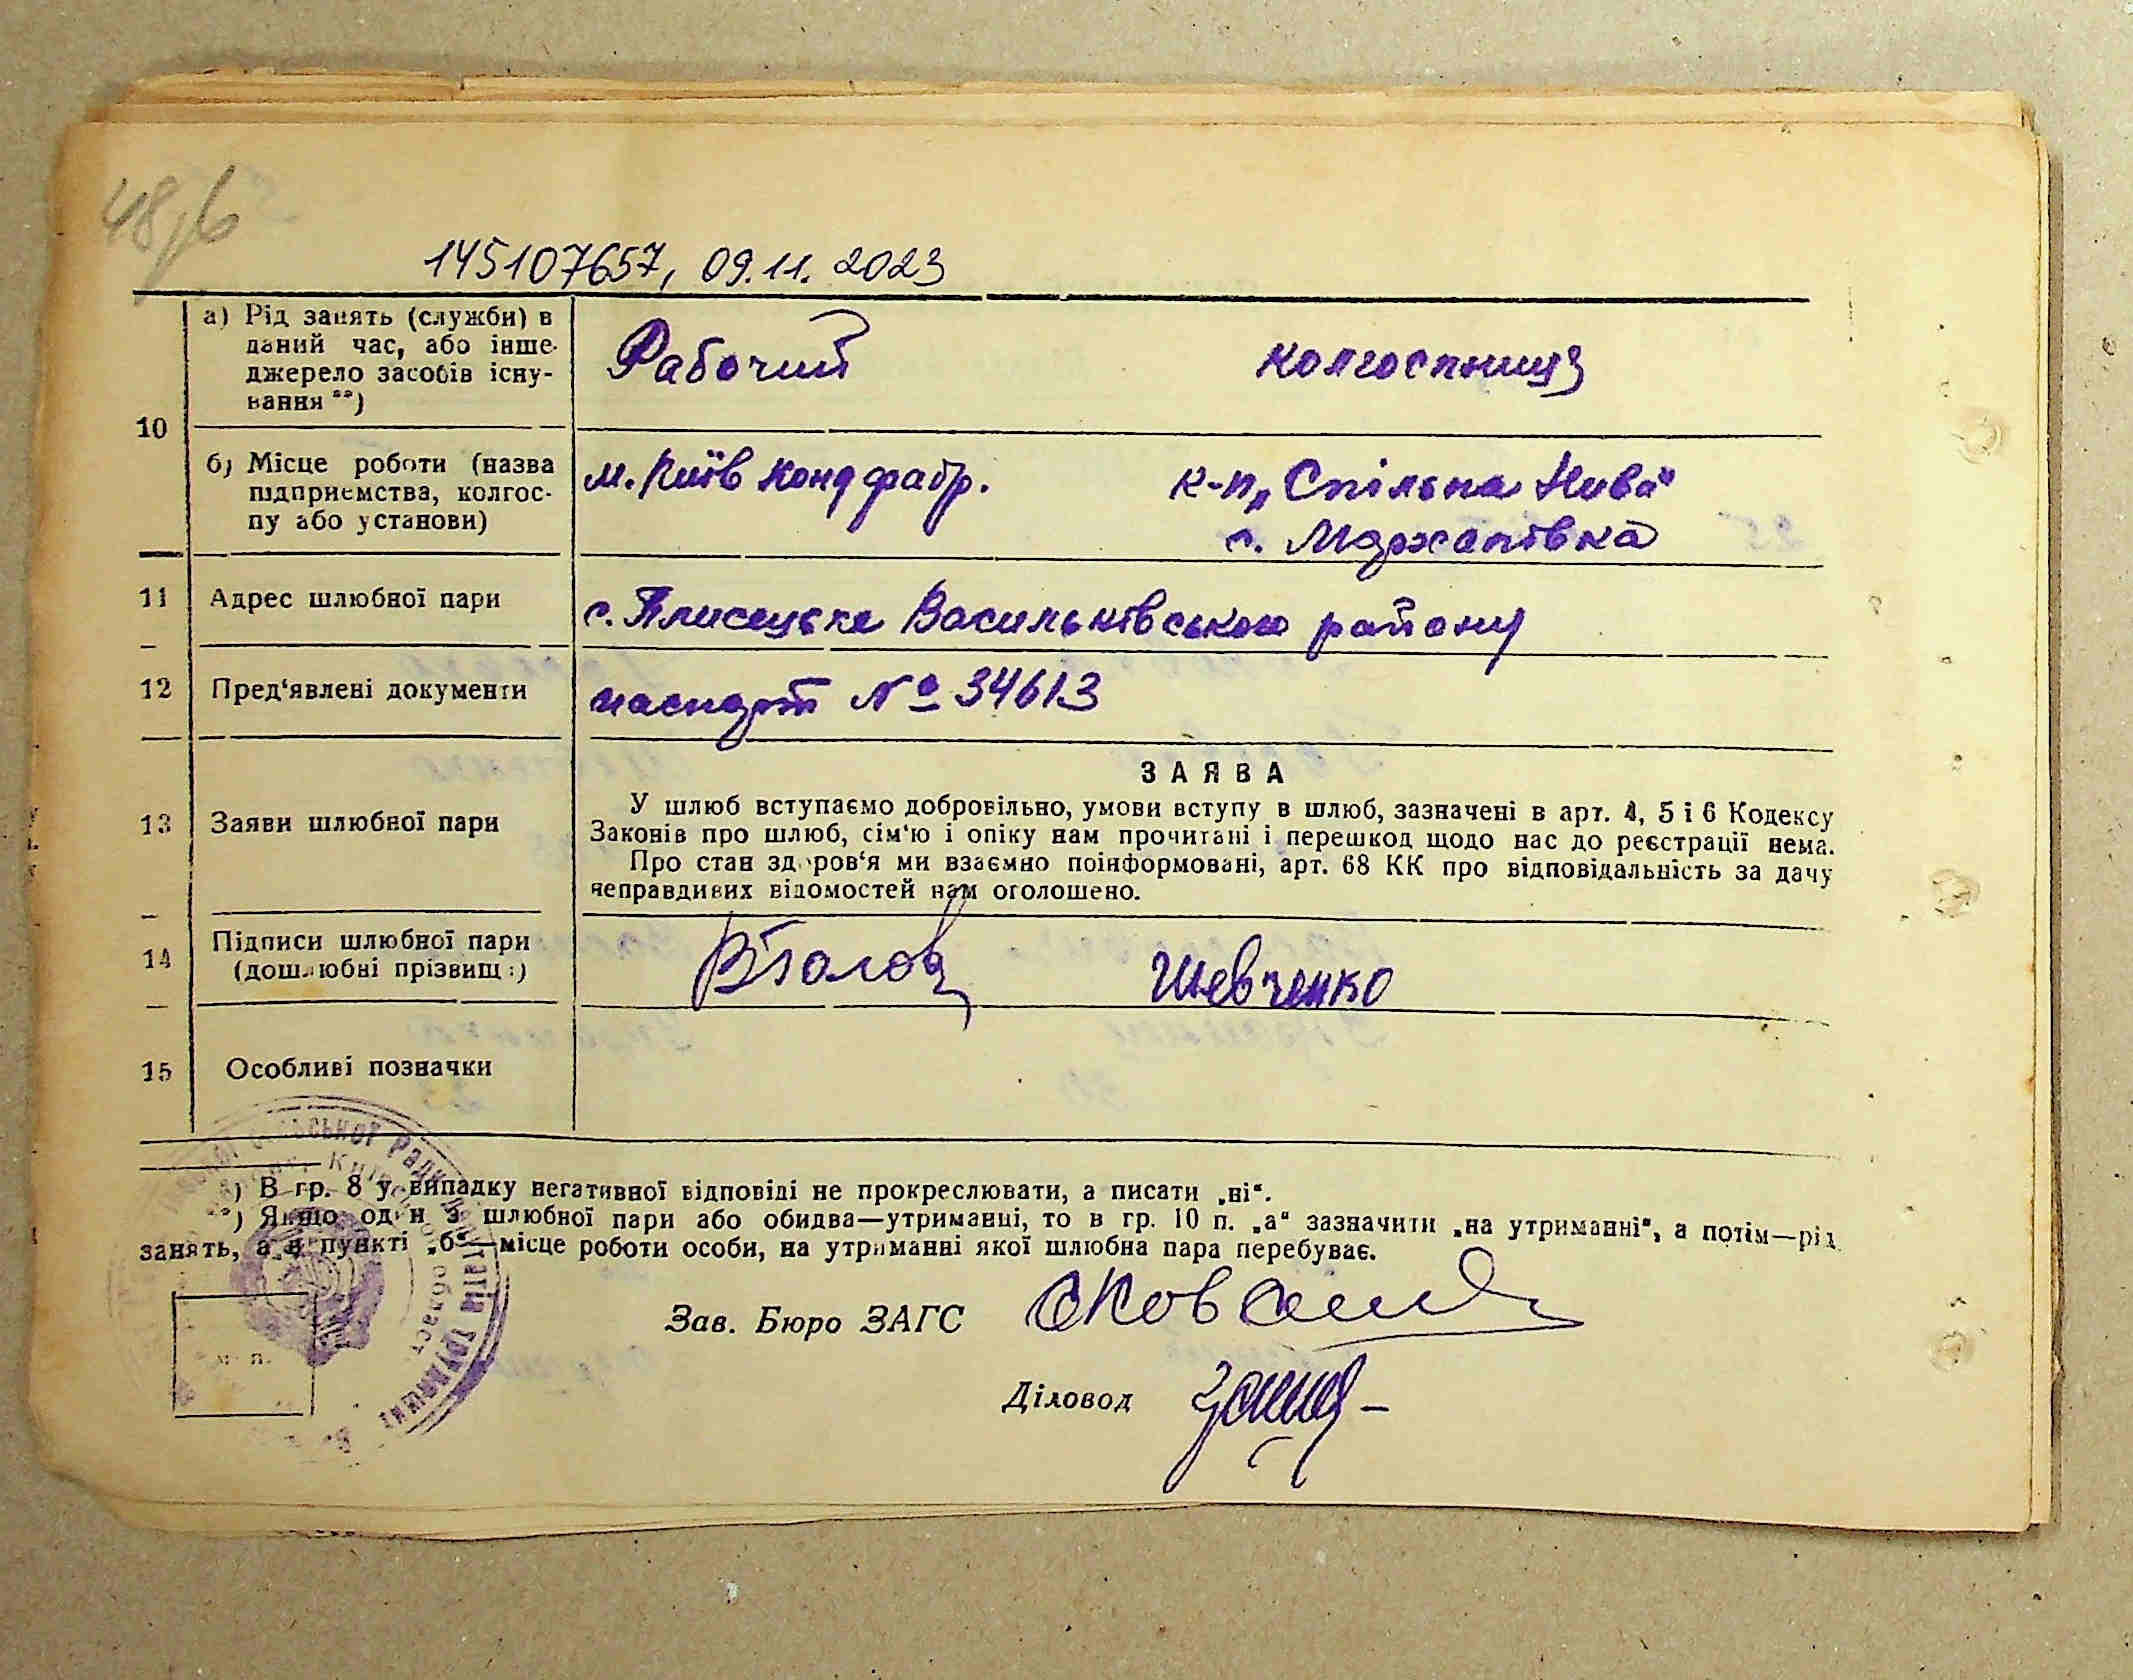 48/6
145107657, 09.11.2023
10
а) Рід занять (служби) в
даний час, або інше
джерело засобів існу-
вання **)
Рабочий
колгоспниця
б) Місце роботи (назва
підприємства, колгос-
пу або установи)
м. Київ Конд фабр.
к-п „Спільна Нива"
с. Мар'янівка
11
Адрес шлюбної пари
с. Плисецьке Васильківського району
12
Пред'явлені документи
паспорт № 34613
13
Заяви шлюбної пари
ЗАЯВА
У шлюб вступаємо добровільно, умови вступу в шлюб, зазначені в арт. 4, 5 і 6 Кодексу
Законів про шлюб, сім'ю і опіку нам прочитані і перешкод щодо нас до реєстрації нема.
Про стан здоров'я ми взаємно поінформовані, арт. 68 КК про відповідальність за дачу
неправдивих відомостей нам оголошено.
14
Підписи шлюбної пари
(дошлюбні прізвища)
Шевченко
15
Особливі позначки
*) В гр. 8 у випадку негативної відповіді не прокреслювати, а писати „ні".
**) Якщо один з шлюбної пари або обидва—утриманці, то в гр. 10 п. „а" зазначити „на утриманні", а потім—рід
занять, а в пункті „б"—місце роботи особи, на утриманні якої шлюбна пара перебуває.
Зав. Бюро ЗАГС
Діловод
м. п.